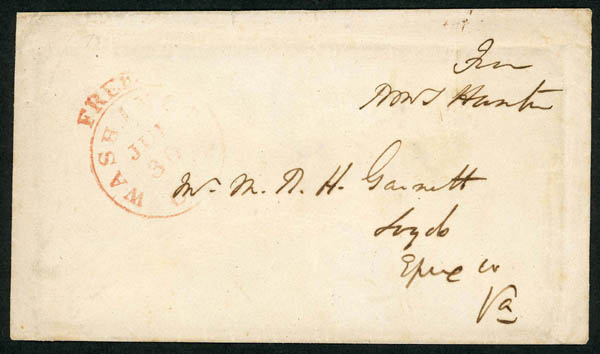 FREE
WASH
JUN
30
Free
RMT Hunter
Mr. M. R. H. Garnett
Loyds
Essex co
Va